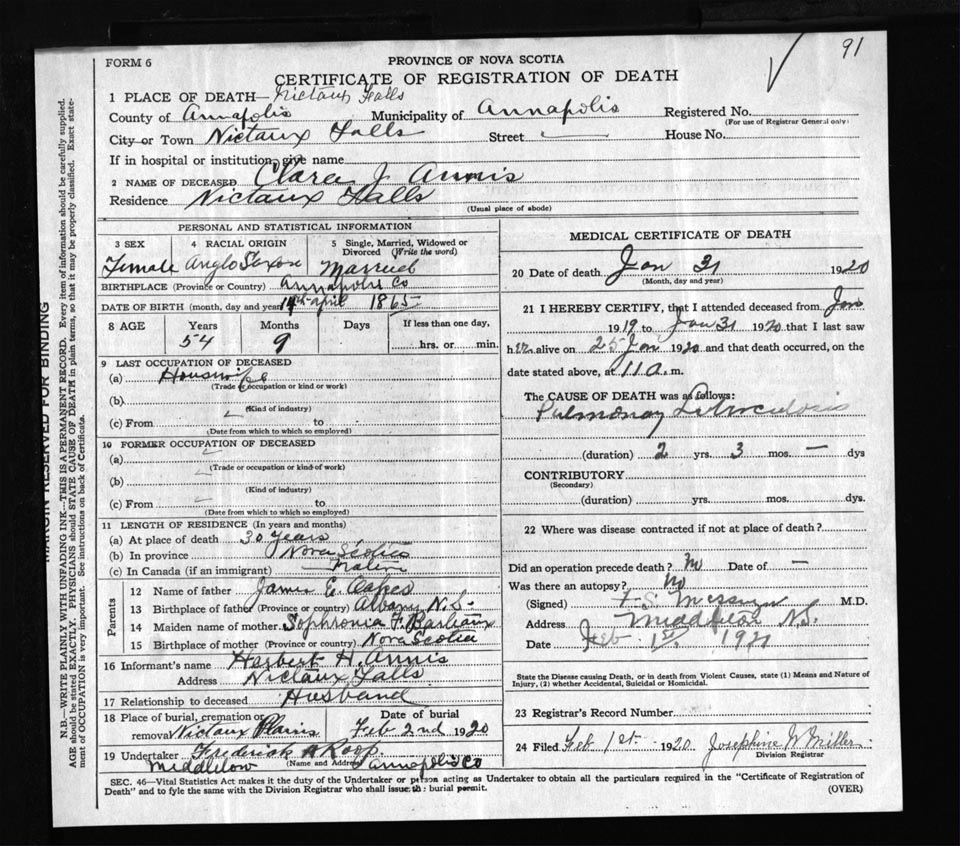 91
FORM 6
PROVINCE OF NOVA SCOTIA
CERTIFICATE OF REGISTRATION OF DEATH
1 PLACE OF DEATH— Nictaux Falls
County of Annapolis Municipality of Annapolis Registered No.
(For use of Registrar General only)
City or Town Nictaux Falls Street House No.
If in hospital or institution, give name
2 NAME OF DECEASED Clara J Annis
Residence Nictaux Falls
(Usual place of abode)
PERSONAL AND STATISTICAL INFORMATION
3 SEX 4 RACIAL ORIGIN 5 Single, Married, Widowed or Divorced (Write the word)
Female Anglo Saxon Married
BIRTHPLACE (Province or Country) Annapolis Co
DATE OF BIRTH (month, day and year) 14th April 1865
8 AGE Years Months Days If less than one day,
54 9 hrs. or min.
9 LAST OCCUPATION OF DECEASED
(a) Housewife
(Trade or occupation or kind or work)
(b)
(Kind of industry)
(c) From to
(Date from which to which so employed)
10 FORMER OCCUPATION OF DECEASED
(a)
(Trade or occupation or kind of work)
(b)
(Kind of industry)
(c) From to
(Date from which to which so employed)
11 LENGTH OF RESIDENCE (In years and months)
(a) At place of death 30 Years
(b) In province Nova Scotia
(c) In Canada (if an immigrant) Native
Parents
12 Name of father James E. Oakes
13 Birthplace of father (Province or country) Albany N.S.
14 Maiden name of mother Sophronia F. Barteaux
15 Birthplace of mother (Province or country) Nova Scotia
16 Informant's name Herbert H. Annis
Address Nictaux Falls
17 Relationship to deceased Husband
18 Place of burial, cremation or removal Nictaux Plains Date of burial Feb 2nd 1920
19 Undertaker Frederick A Roop
(Name and Address)
Middleton Annapolis Co
MEDICAL CERTIFICATE OF DEATH
20 Date of death Jan 31 1920
(Month, day and year)
21 I HEREBY CERTIFY, that I attended deceased from Jan
1919 to Jan 31 1920 that I last saw
her alive on 25 Jan 1920 and that death occurred, on the
date stated above, at 11 a. m.
The CAUSE OF DEATH was as follows:
Pulmonary Tuberculosis
(duration) 2 yrs. 3 mos. — dys
CONTRIBUTORY
(Secondary)
(duration) yrs. mos. dys.
22 Where was disease contracted if not at place of death?
Did an operation precede death? No Date of —
Was there an autopsy? No
(Signed) F S Messenger M.D.
Address Middleton N.S.
Date Feb 1st. 1920
State the Disease causing Death, or in death from Violent Causes, state (1) Means and Nature of
Injury, (2) whether Accidental, Suicidal or Homicidal.
23 Registrar's Record Number
24 Filed Feb 1st 1920 Josephine Miller
Division Registrar
SEC. 46—Vital Statistics Act makes it the duty of the Undertaker or person acting as Undertaker to obtain all the particulars required in the "Certificate of Registration of
Death" and to fyle the same with the Division Registrar who shall issue the burial permit.
(OVER)
MARGIN RESERVED FOR BINDING
N.B.—WRITE PLAINLY WITH UNFADING INK—THIS IS A PERMANENT RECORD. Every item of information should be carefully supplied.
AGE should be stated EXACTLY. PHYSICIANS should STATE CAUSE OF DEATH in plain terms, so that it may be properly classified. Exact statement of OCCUPATION is very important. See instructions on back of Certificate.